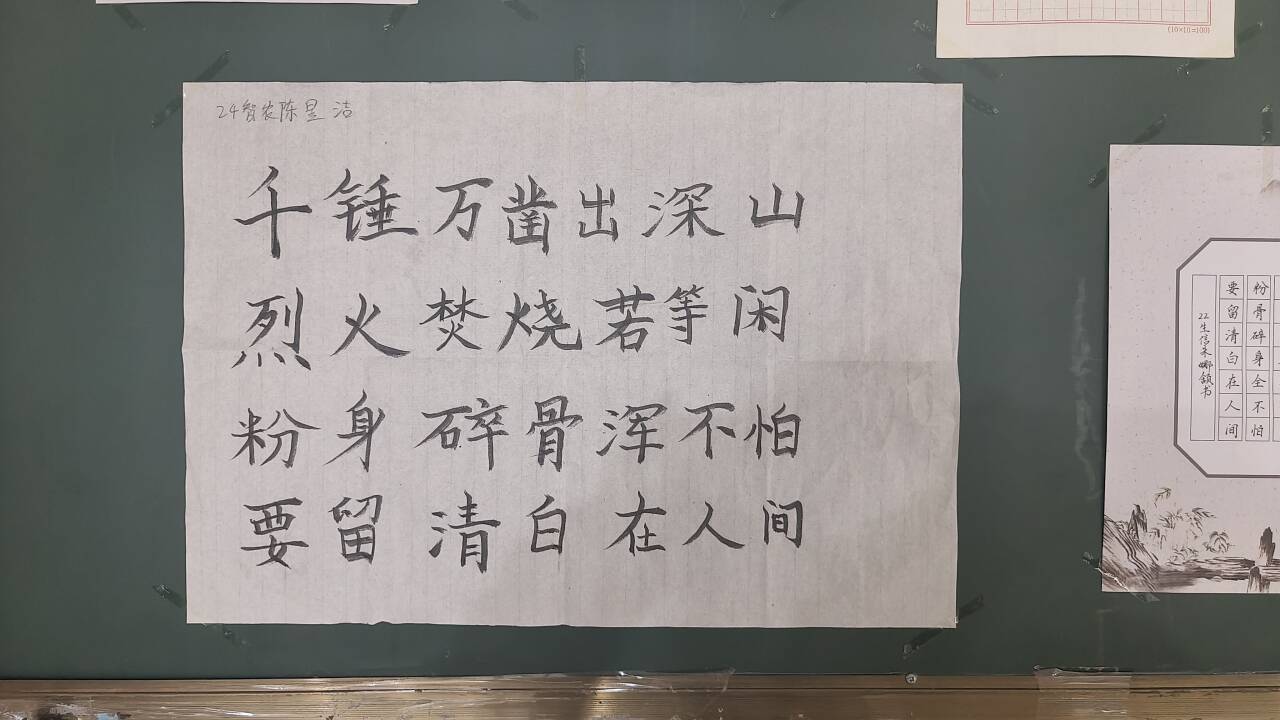 (10×10=100)
24智农陈昱洁
千锤万凿出深山
烈火焚烧若等闲
粉身碎骨浑不怕
要留清白在人间
粉骨碎身全不怕
要留清白在人间